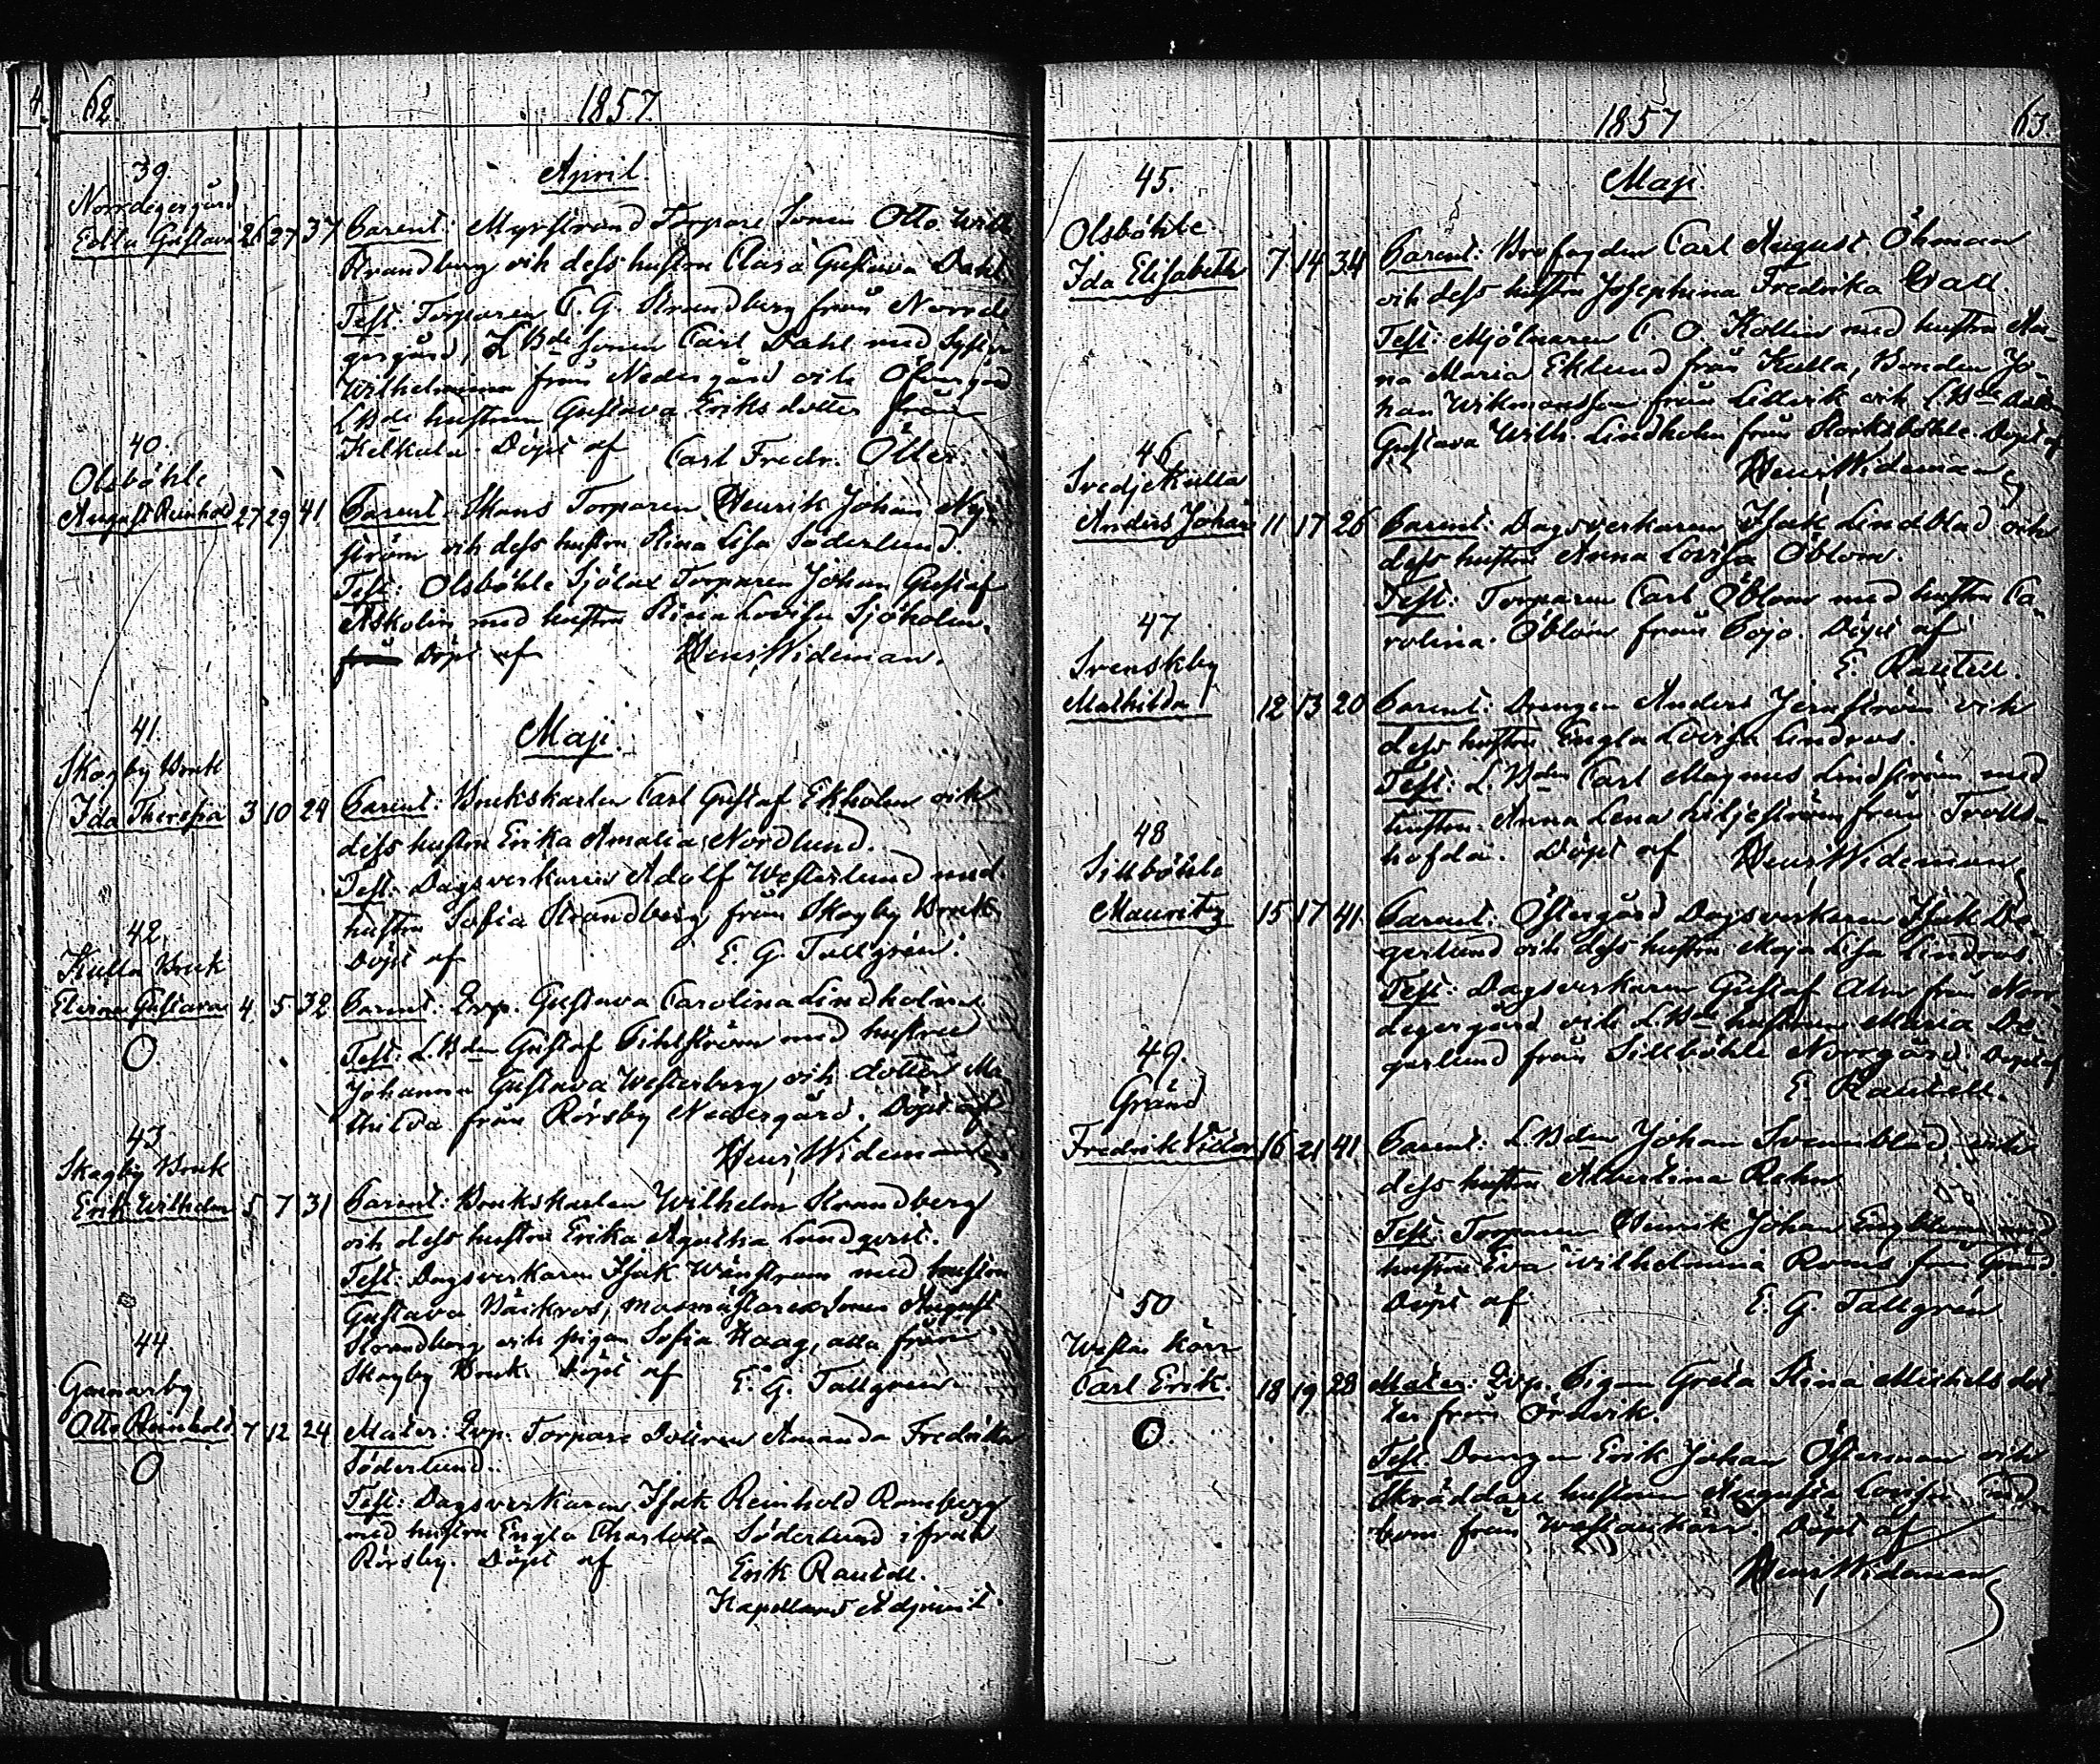 62.
1857.
April.
39.
Norrdegergård
Edla Gustava 26 27 37 Parent: Myrstrand Torpare Sonen Otto Wilh.
Strandberg och dess hustru Clara Gustava Dahl
Test: Torparen C. G. Strandberg från Norrde
gergård, LBde sonen Carl Dahl med Syster
Wilhelmina från Nedergård och Öfvergård
LBde hustrun Gustava Eriksdotter från
Kelkala. Döpt af Carl Fredr. Öller.
40.
Olsböhle
August Reinhold 27 29 41 Parent: Torparen Henrik Johan Ny-
ström och dess hustru Stina Lisa Söderlund.
Test: Olsböhle Sjölax Torparen Johan Gustaf
Askolin med hustru Stina Lovisa Sjöholm.
från Döpt af Henr. Wideman.
Maji.
41.
Skogby Bruk
Ida Theresia 3 10 24 Parent: Brukskarlen Carl Gustaf Ekholm och
dess hustru Erika Amalia Nordlund.
Test: Dagsverkaren Adolf Westerlund med
hustru Sofia Strandberg från Skogby Bruk.
Döpt af E. G. Tallgrén.
42.
Kulla Bruk
Elvira Gustava 4 5 32 Parent: Qvp. Gustava Carolina Lindholm
O
Test: L.Bden Gustaf Pihlström med hustru
Johanna Gustava Westerberg och dotter Ma-
thilda från Rörsby Nedergård. Döpt af
Henr. Wideman
43
Skogby Bruk
Erik Wilhelm 5 7 31 Parent: Brukskarlen Wilhelm Strandberg
och dess hustru Erika Agatha Lundqvist.
Test: Dagsverkaren Isak Wänström med hustru
Gustava Bäckros, Masmästares Sonen August
Strandberg och pigan Sofia Haag, alla från
Skogby Bruk. Döpt af E. G. Tallgrén.
44.
Gennarby
Otto Reinhold 7 12 24 Mater: Qvp. Torpare Dottren Amanda Fredrika
O
Söderlund.
Test: Dagsverkaren Isak Reinhold Romberg
med hustru Engla Charlotta Söderlund ifrån
Rörsby. Döpt af Erik Rautell.
Kapellans Adjunct.
1857
63.
Maji
45.
Olsböhle
Ida Elisabeth 7 14 34 Parent: Brofogden Carl August Öhman
och dess hustru Josephina Fredrika Gall.
Test: Mjölnaren C. O. Kollin med hustru An-
na Maria Eklund från Kulla, Bonden Jo-
han Wikmansson från Lillvik och LBde
Gustava Wilh. Lindholm från Storksböhle. Döpt af
Henr. Wideman
46
Svedjekulla
Anders Johan 11 17 26 Parent: Dagsverkaren Isak Lindblad och
dess hustru Anna Lovisa Öblom.
Test: Torparen Carl Öblom med hustru Ca-
rolina Öblom från Pojo. Döpt af
E. Rautell.
47
Svenskby
Mathilda 12 13 20 Parent: Drengen Anders Jernström och
dess hustru Engla Lovisa Lindros.
Test: L.Bden Carl Magnus Lindström med
hustru Anna Lena Liljeström från Trolls-
hofda. Döpt af Henr. Wideman
48
Sillböhle
Mauritz 15 17 41 Parent: Östergård Dagsverkaren Isak De-
gerlund och dess hustru Maja Lisa Lindros.
Test: Dagsverkaren Gustaf Alm från Norr
degergård och L.Bde hustrun Maria De
gerlund från Sillböhle Norrgård. Döpt af
E. Rautell.
49.
Gränd
Fredrik Victor 16 21 41 Parent: LBden Johan Svennblad och
dess hustru Albertina Rehn
Test: Torparen Henrik Johan Engblom med
hustru Eva Wilhelmina Roms från Gränd.
Döpt af E. G. Tallgrén
50
Westankärr
Carl Erik. 18 19 28 Mater: Qvp. Pigan Greta Stina Michelsdot
O.
ter från Öravik.
Test Drengen Erik Johan Österman och
Skräddare hustrun Augusta Lovisa
bom från Westankärr. Döpt af
Henr. Wideman